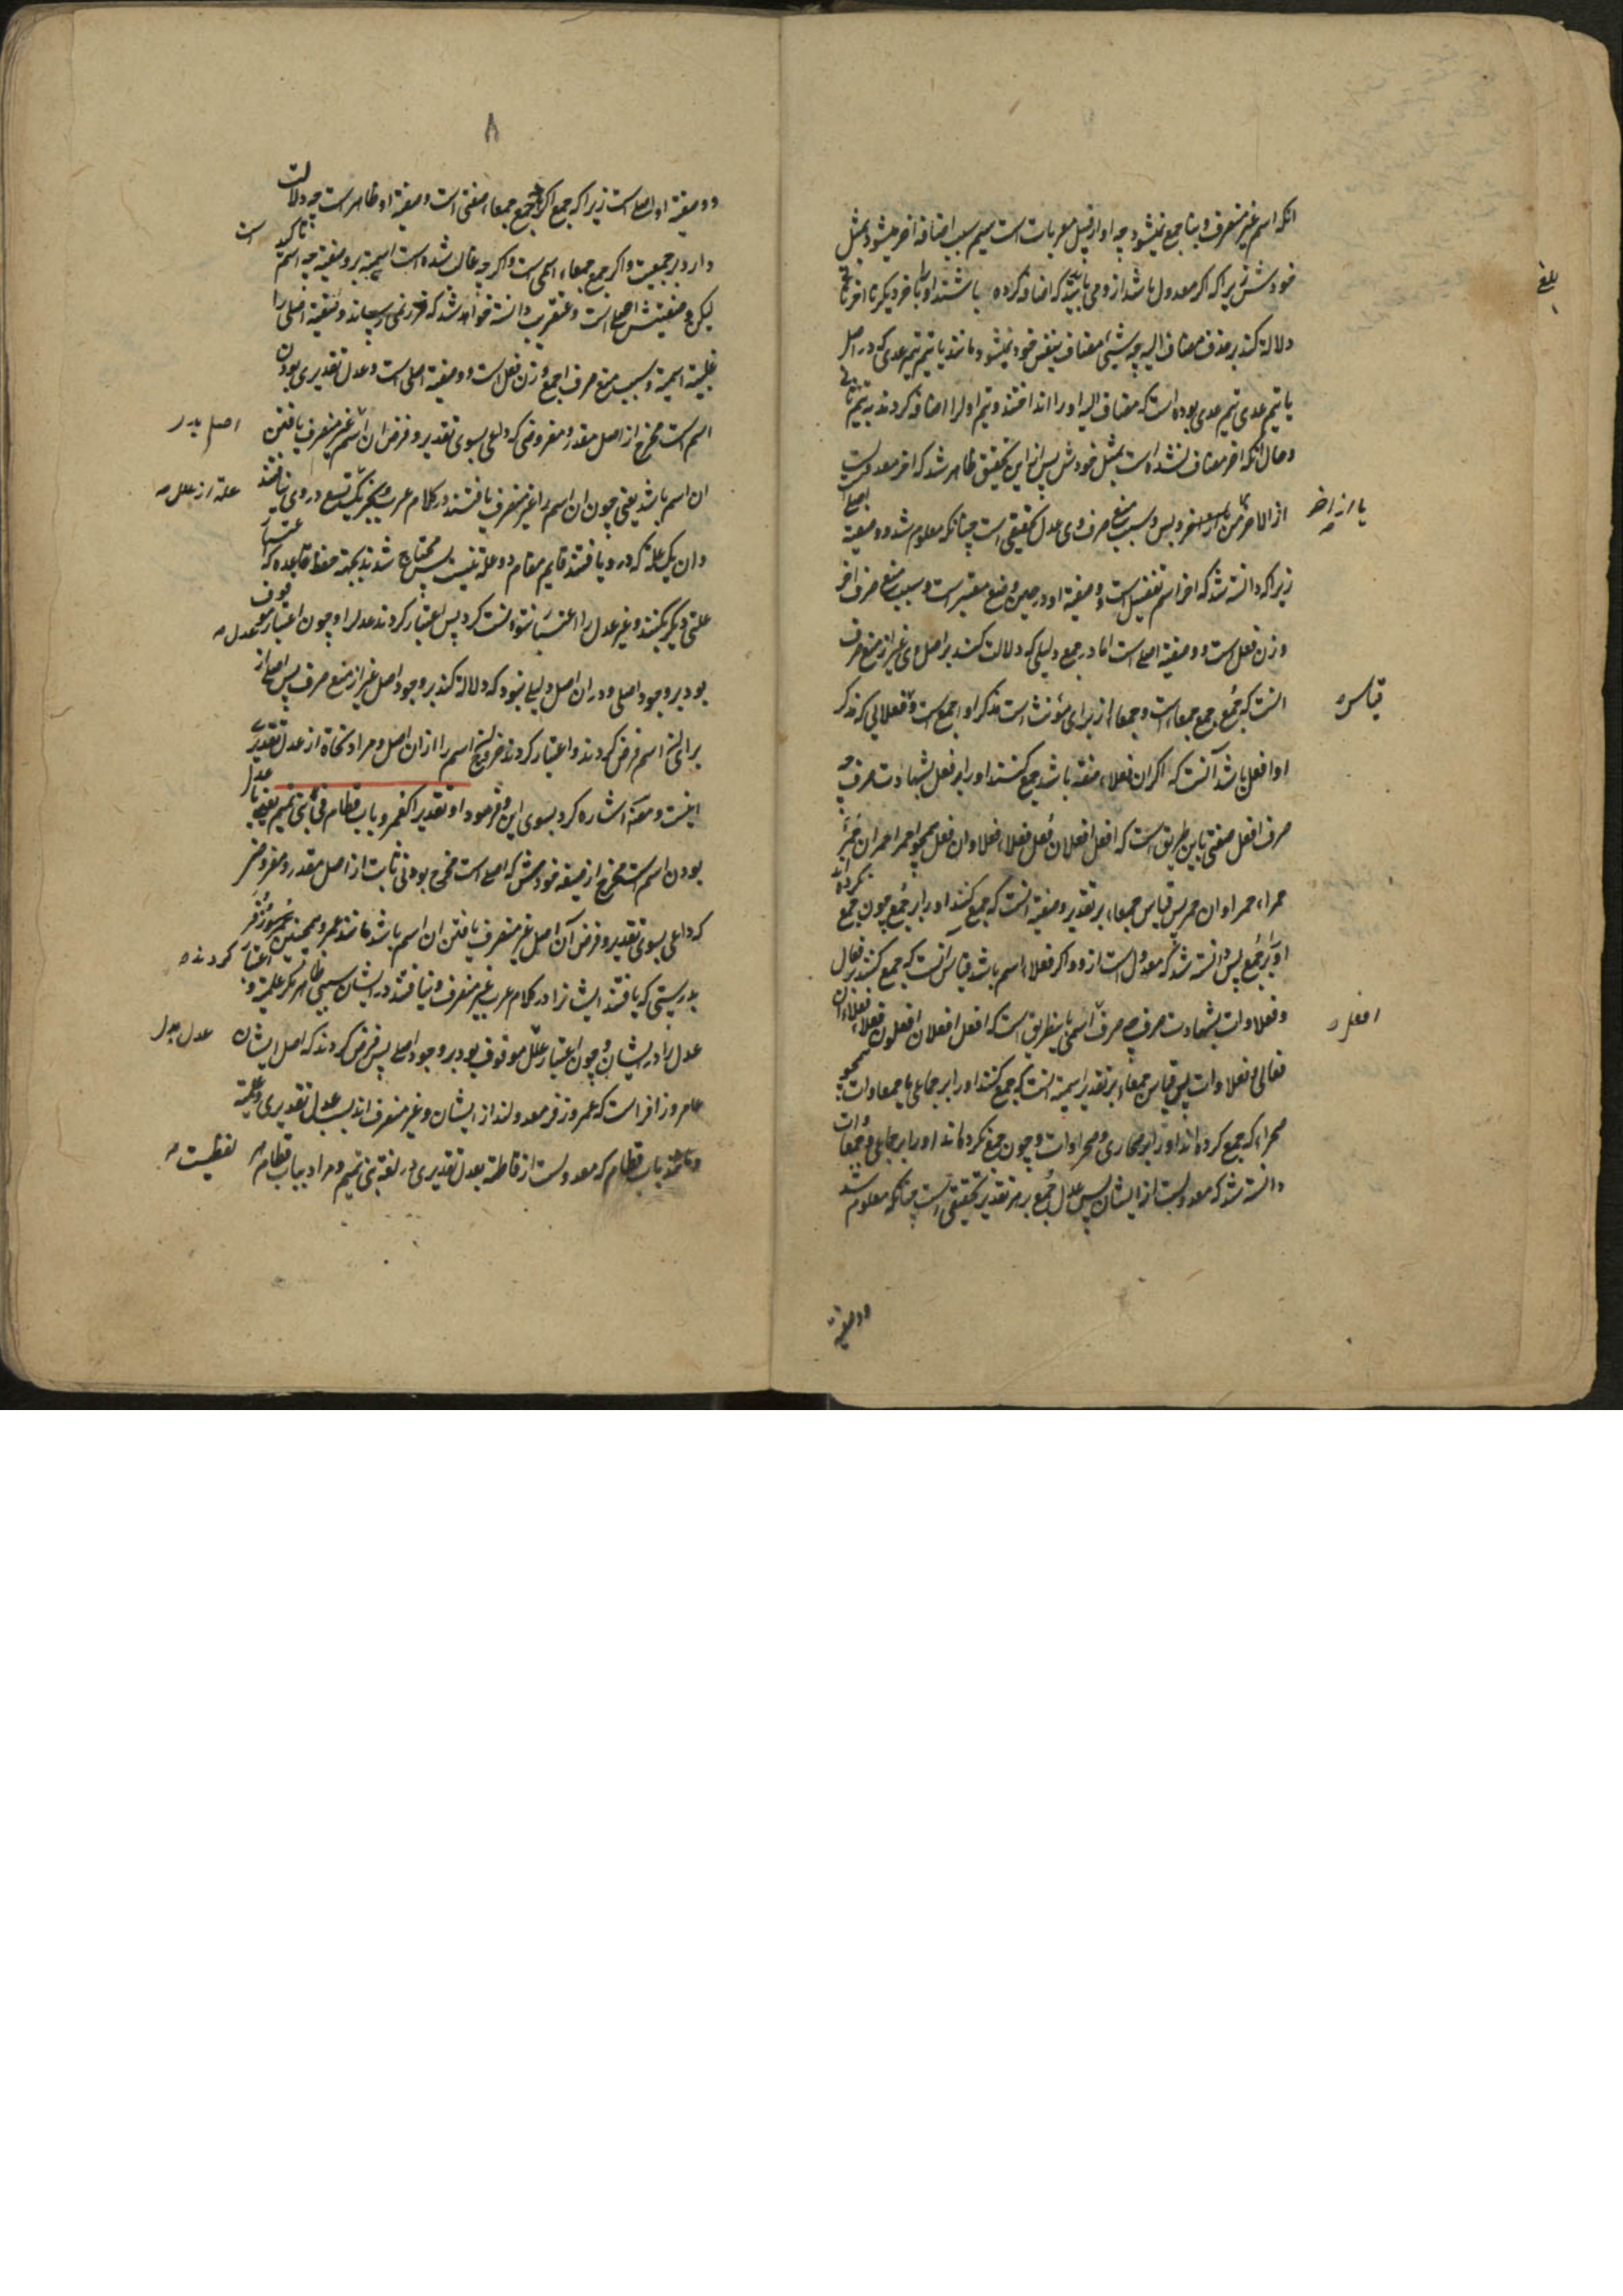 انکه اسم غیر منصرف و بنا جمع نمیشود چه او از قبیل معربات است سیم سبب اضافه اخر میشود بمثل
خودش زیراکه اکر معدول باشد از وی باید که اضافه کرده باشند او را باخر دیکر تا اخر ثانی
دلالة کند بر حذف مضاف الیه چه شیئ مضاف بنفس خود نمیشود مانند یا تیم تیم عدی که در اصل
یا تیم عدی تیم عدی بوده است که مضاف الیه او را انداختند و تیم اول را اضافه کردند به تیم ثانی
و حال انکه اخر مضاف نشده است بمثل خودش پس از این تحقیق ظاهر شد که اخر معدولست
از الاخر یا از اخر من و بس و سبب منع صرف وی عدل تحقیقی است چنانکه معلوم شد و وصفیة اصلی
زیراکه دانسته شد که اخر اسم تفضیل است و وصفیة او در حین وضع معتبر است و سبب منع صرف اخر
وزن فعل است و وصفیة اصلی است اما در جمع دلیلی که دلالت کند بر اصل وی غیر از منع صرف
انست که جُمَع جمع جمعاء است و جمعاء از برای مؤنث است مذکر او اجمع است و قیاس فعلائی که مذکر
او افعل باشد آنست که اکر ان فعلاء صفة باشد جمع کنند او را بر فعل بشهادت صرف چه
صرف افعل صفتی باین طریق است که افعل افعلان فُعل فعلاء فعلاوان فعل همچو احمر احمران حُمر
حمراء حمراوان حمر پس قیاس جمعاء بر تقدیر وصفیة انست که جمع کنند او را بر جُمْع چون جمع نکرده اند
او را بر جُمْع پس دانسته شد که معدول است از او و اکر فعلاء اسم باشد قیاس انست که جمع کنند بر فعالی
و فعلاوات بشهادت صرف چه صرف افعل اسمی باینطریق است که افعل افعلان افعلون فعلاء فعلاءان
فعالی و فعلاوات پس قیاس جمعاء بر تقدیر اسمیة انست که جمع کنند او را بر جماعی یا جمعاوات همچو
صحراء که جمع کرده اند او را بر صحاری و صحراوات و چون جمع نکرده اند او را بر جماعی و جمعاوات
دانسته شد که معدولست از ایشان پس عدل جُمَع بر هر تقدیر تحقیقی است چنانکه معلوم شد
و وصفیة
۸
و وصفیة او اصلی است زیراکه جمع اکر جمع جمعاء صفتی است وصفیة او ظاهر است چه دلالت
دارد بر جمعیت و اکر جمع جمعاء اسمی است و اکرچه غالب شده است اسمیة بر وصفیة چه اسم تاکید است
لیکن وصفیتش اصلی است و عنقریب دانسته خواهد شد که ضرر نمی رساند وصفیة اصلی را
غلبه اسمیة و سبب منع صرف اجمع وزن فعل است و وصفیة اصلی است و عدل تقدیری بودن
اسم است مخرج از اصل مقدر و مفروضی که داعی بسوی تقدیر و فرض ان اصل غیر منصرف یافتن
ان اسم باشد یعنی چون ان اسم را غیر منصرف یافتند در کلام عرب و بجز یک علة از علل تسع در وی نیافتند
وان یک علة که در و یافتند قایم مقام دو علة نیست پس محتاج شدند بجهة حفظ قاعده که اعتبار
علتی دیکر بکنند و غیر عدل را اعتبار نتوانست کرد پس اعتبار کردند عدل را و چون اعتبار عدل موقوف
بود بر وجود اصلی و در ان اصل دلیلی نبود که دلالة کند بر وجود اصل غیر از منع صرف پس اصلی از
برای ان اسم فرض کردند و اعتبار کردند خروج اسم را از ان اصل و مراد نحاة از عدل تقدیری
اینست و مصنف اشاره کرد بسوی این و فرمود او تقدیرا کعمر و باب قطام فی بنی تمیم یعنی یا عدل
بودن اسم است مخرج از صیغه خودش که اصلی است مخرج بودنی ثابت از اصل مقدر و مفروض
که داعی بسوی تقدیر و فرض آن اصل غیر منصرف یافتن ان اسم باشد مانند عمر و همچنین زفر
بدرستی که یافتند ایشانرا در کلام عرب غیر منصرف و نیافتند در ایشان سببی ظاهر مکر علمیة و اعتبار کردند
عدل را در ایشان و چون اعتبار عدل موقوف بود بر وجود اصلی پس فرض کردند که اصل ایشان
عامر و زافر است که عمر و زفر معدولند از ایشان و غیر منصرف اند بسبب عدل تقدیری و علمیة
و مانند باب قطام که معدولست از قاطمة بعدل تقدیری در لغة بنی تمیم و مراد بباب قطام لفظیست